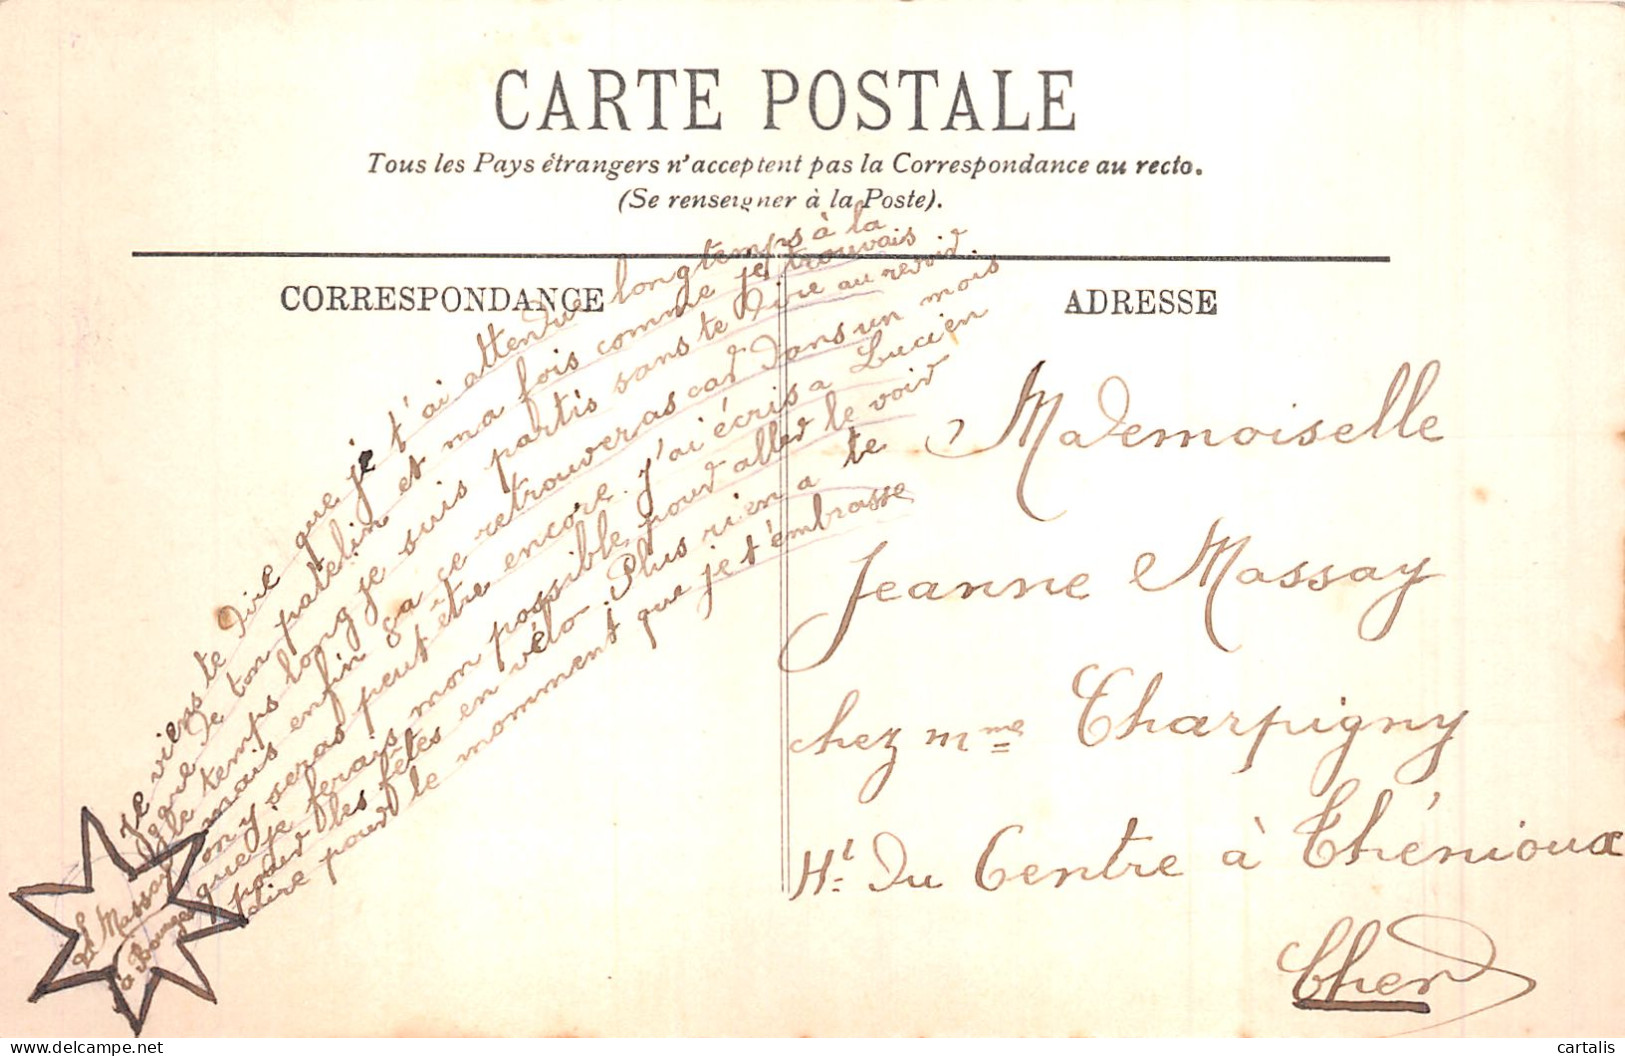 CARTE POSTALE
Tous les Pays étrangers n'acceptent pas la Correspondance au recto.
(Se renseigner à la Poste).
CORRESPONDANCE
ADRESSE
Je viens te dire que je t'ai attendu longtemps à la
gare de ton patelin et ma fois comme je trouvais
le temps long je suis partis sans te dire au revoir.
mais enfin ça ce retrouveras car dans un mois
on y seras peut être encore. j'ai écris a Lucien
que je ferais mon possible pour aller le voir
pour les fêtes en vélo. Plus rien a te
dire pour le momment que je t'embrasse
Massay
à Bourges
Mademoiselle
Jeanne Massay
chez Mme Charpigny
Ht. du Centre à Thénioux
Cher
delcampe.net
cartalis